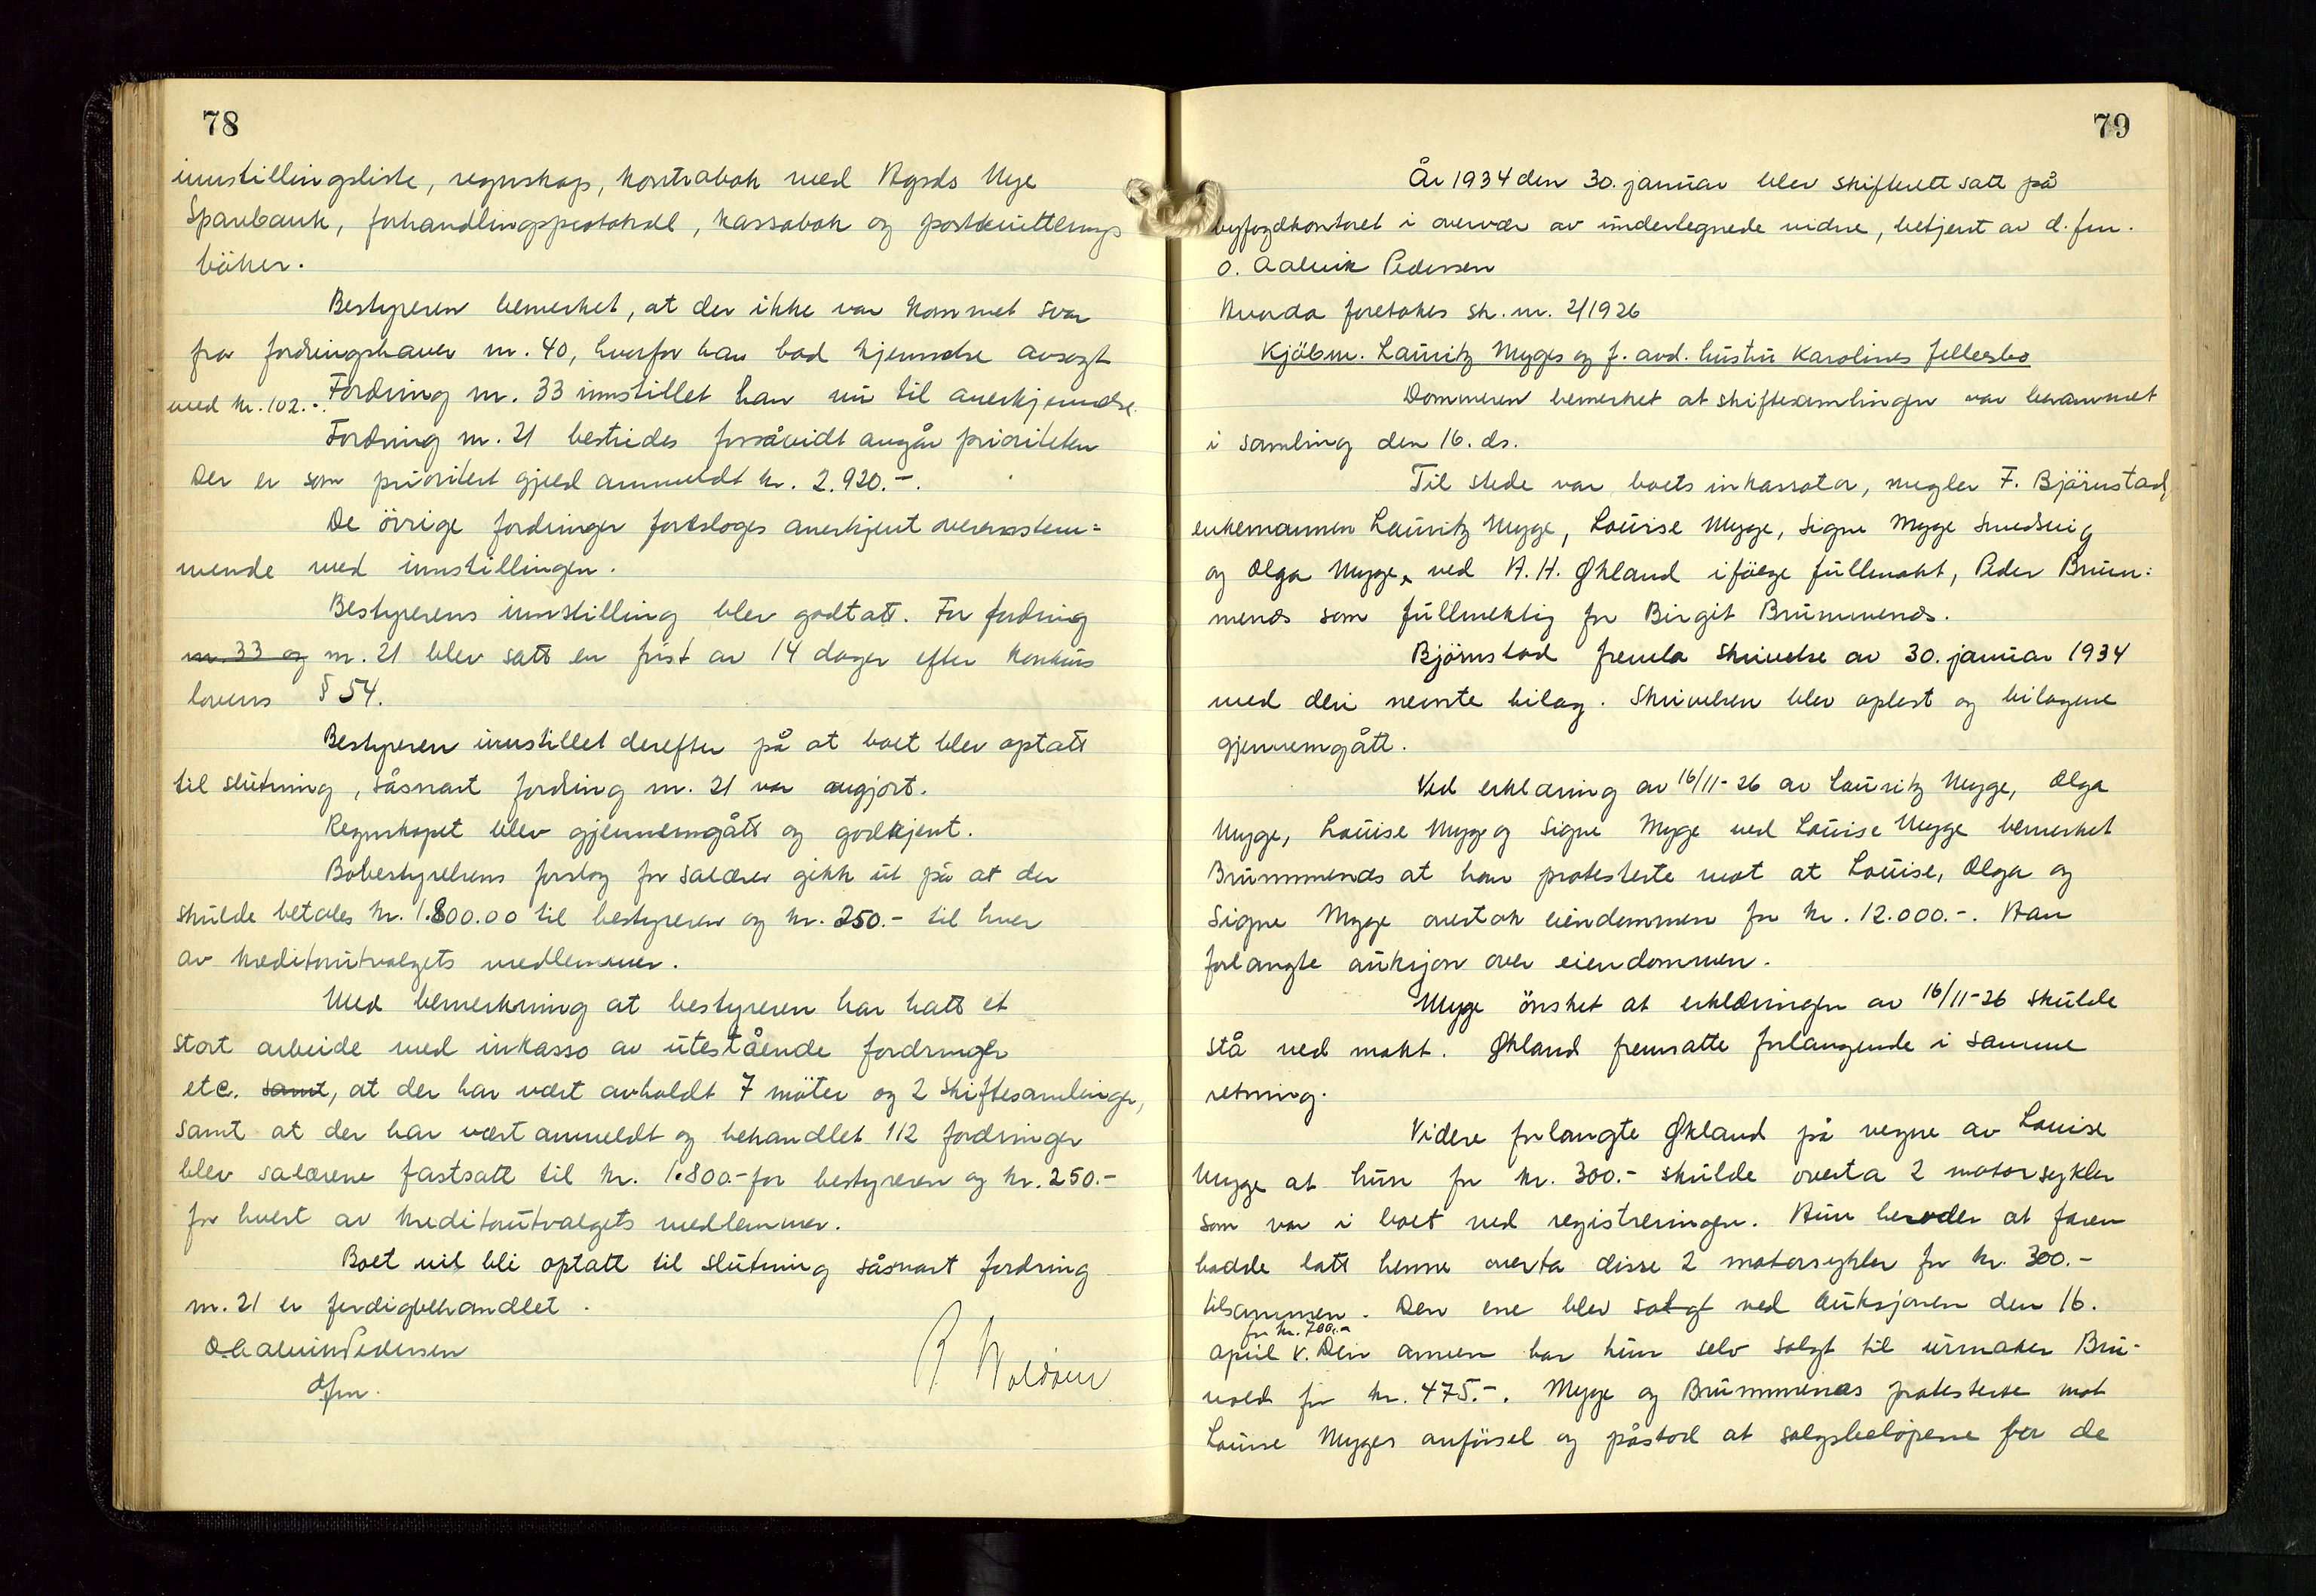 78
innstillingsliste, regnskap, kontrabok med Agds Nye
Sparebank, forhandlingsprotokoll, kassabok og postkvitterings
böker.
Bestyreren bemerket, at der ikke var kommet svar
fra fordringshaver nr. 40, hvorfor han bad kjennelse avsagt
med kr. 102.-. Fordring nr. 33 innstillet han nu til anerkjennelse.
Fordring nr. 21 bestrides forsåvidt angår prioriteten
Der er som prioritert gjeld anmeldt kr. 2.920.-.
De övrige fordringer foresloges anerkjent overensstem=
mende med innstillingen.
Bestyrerens innstilling blev godtatt. For fordring
nr. 33 og nr. 21 blev satt en frist av 14 dager efter konkurs
lovens § 54.
Bestyreren innstillet derefter på at boet blev optatt
til slutning, såsnart fordring nr. 21 var avgjort.
Regnskapet blev gjennemgått og godkjent.
Bobestyrelsens forslag for salærer gikk ut på at der
skulde betales kr. 1.800.00 til bestyreren og kr. 250.- til hver
av kreditorutvalgets medlemmer.
Med bemerkning at bestyreren har hatt et
stort arbeide med inkasso av utestående fordringer
etc. samt, at der har vært avholdt 7 möter og 2 skiftesamlinger,
samt at der har vært anmeldt og behandlet 112 fordringer
blev salærene fastsatt til kr. 1.800.- for bestyreren og kr. 250.-
for hvert av kreditorutvalgets medlemmer.
Boet vil bli optatt til slutning såsnart fordring
nr. 21 er ferdigbehandlet.
O. Aalvik Pedersen
dfm.
79
År 1934 den 30. januar blev skifterett satt på
byfogdkontoret i overvær av undertegnede vidne, betjent av d. fm.
O. Aalvik Pedersen
Hvorda foretokes sk. nr. 2/1926
Kjöbm. Lauritz Mygges og f. avd. hustru Karolines fellesbo
Dommeren bemerket at skiftesamlingen var berammet
i samling den 16. ds.
Til stede var boets inkassator, megler F. Björnstad,
enkemannen Lauritz Mygge, Louise Mygge, Signe Mygge Smedsvig
og Olga Mygge, ved A. H. Økland ifölge fullmakt, Peder Brum=
menæs som fullmektig for Birgit Brummenæs.
Björnstad fremla skrivelse av 30. januar 1934
med deri nevnte bilag. Skrivelsen blev oplest og bilagene
gjennemgått.
Ved erklæring av 16/11-26 av Lauritz Mygge, Olga
Mygge, Louise Mygge og Signe Mygge ved Louise Mygge bemerket
Brummenæs at han protesterte mot at Louise, Olga og
Signe Mygge overtok eiendommen for kr. 12.000.-. Han
forlangte auksjon over eiendommen.
Mygge önsket at erklæringen av 16/11-26 skulde
stå ved makt. Økland fremsatte forlangende i samme
retning.
Videre forlangte Økland på vegne av Louise
Mygge at hun for kr. 300.- skulde overta 2 motorsykler
som var i boet ved registreringen. Hun beroder at faren
hadde latt henne overta disse 2 motorsykler for kr. 300.-
tilsammen. Den ene blev solgt ved auksjonen den 16.
for kr. 700.-
april v. Den annen har hun selv solgt til urmaker Bru-
vold for kr. 475.-. Mygge og Brummenæs protesterte mot
Louise Mygges anförsel og påstod at salgsbelöpene for de